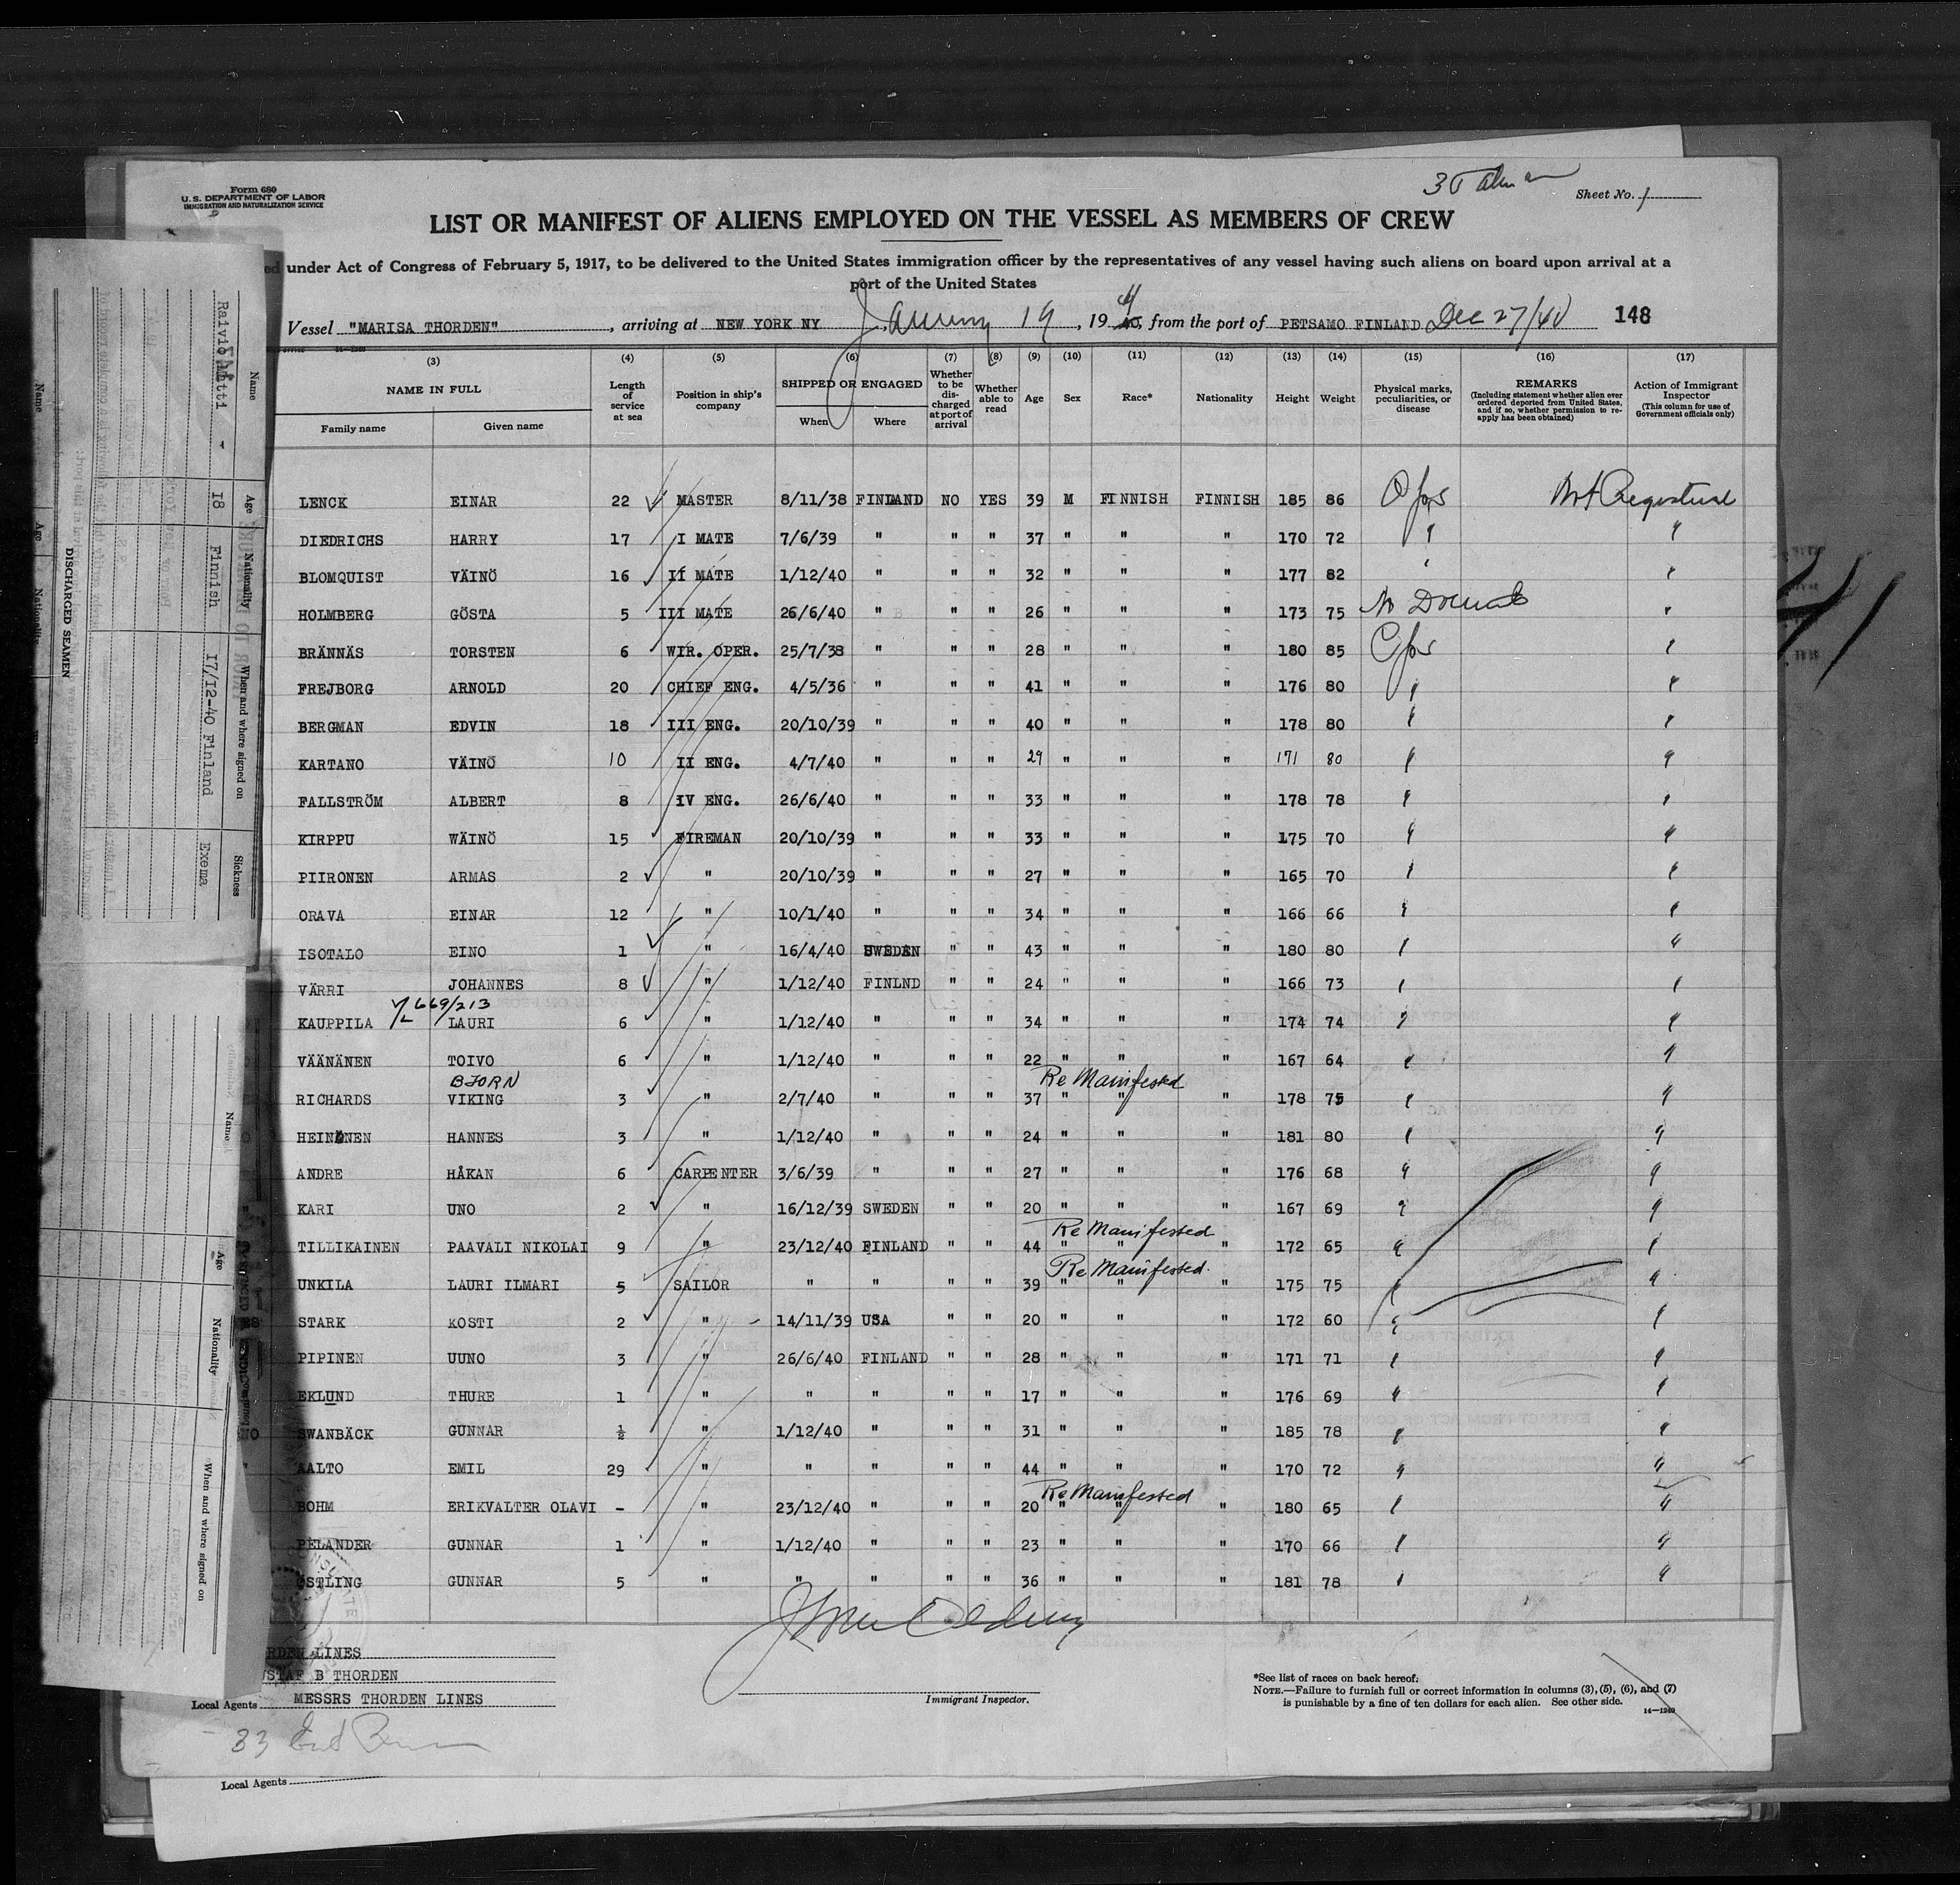 Form 680
U.S. DEPARTMENT OF LABOR
IMMIGRATION AND NATURALIZATION SERVICE
Sheet No. 1
LIST OR MANIFEST OF ALIENS EMPLOYED ON THE VESSEL AS MEMBERS OF CREW
ed under Act of Congress of February 5, 1917, to be delivered to the United States immigration officer by the representatives of any vessel having such aliens on board upon arrival at a
port of the United States
Vessel "MARISA THORDEN", arriving at NEW YORK NY January 19, 1941, from the port of PETSAMO FINLAND Dec 27/40 148
(3) (4) (5) (6) (7) (8) (9) (10) (11) (12) (13) (14) (15) (16) (17)
NAME IN FULL Length of service at sea Position in ship's company SHIPPED OR ENGAGED Whether to be discharged at port of arrival Whether able to read Age Sex Race* Nationality Height Weight Physical marks, peculiarities, or disease REMARKS (Including statement whether alien ever ordered deported from United States, and if so, whether permission to reapply has been obtained) Action of Immigrant Inspector (This column for use of Government officials only)
Family name Given name When Where
LENCK EINAR 22 MASTER 8/11/38 FINLAND NO YES 39 M FINNISH FINNISH 185 86
DIEDRICHS HARRY 17 I MATE 7/6/39 " " " 37 " " " 170 72
BLOMQUIST VÄINÖ 16 II MATE 1/12/40 " " " 32 " " " 177 82
HOLMBERG GÖSTA 5 III MATE 26/6/40 " " " 26 " " " 173 75 No
BRÄNNÄS TORSTEN 6 WIR. OPER. 25/7/38 " " " 28 " " " 180 85
FREJBORG ARNOLD 20 CHIEF ENG. 4/5/36 " " " 41 " " " 176 80
BERGMAN EDVIN 18 III ENG. 20/10/39 " " " 40 " " " 178 80
KARTANO VÄINÖ 10 II ENG. 4/7/40 " " " 29 " " " 171 80
FALLSTRÖM ALBERT 8 IV ENG. 26/6/40 " " " 33 " " " 178 78
KIRPPU WÄINÖ 15 FIREMAN 20/10/39 " " " 33 " " " 175 70
PIIRONEN ARMAS 2 " 20/10/39 " " " 27 " " " 165 70
ORAVA EINAR 12 " 10/1/40 " " " 34 " " " 166 66
ISOTALO EINO 1 " 16/4/40 SWEDEN " " 43 " " " 180 80
VÄRRI JOHANNES 8 " 1/12/40 FINLND " " 24 " " " 166 73
669/213
KAUPPILA LAURI 6 " 1/12/40 " " " 34 " " " 174 74
VÄÄNÄNEN TOIVO 6 " 1/12/40 " " " 22 " " " 167 64
BJORN Re Manifested
RICHARDS VIKING 3 " 2/7/40 " " " 37 " " " 178 75
HEINONEN HANNES 3 " 1/12/40 " " " 24 " " " 181 80
ANDRE HÅKAN 6 CARPENTER 3/6/39 " " " 27 " " " 176 68
KARI UNO 2 " 16/12/39 SWEDEN " " 20 " " " 167 69
Re Manifested
TILLIKAINEN PAAVALI NIKOLAI 9 " 23/12/40 FINLAND " " 44 " " " 172 65
Re Manifested.
UNKILA LAURI ILMARI 5 SAILOR " " " " 39 " " " 175 75
STARK KOSTI 2 " 14/11/39 USA " " 20 " " " 172 60
PIPINEN UUNO 3 " 26/6/40 FINLAND " " 28 " " " 171 71
EKLUND THURE 1 " " " " " 17 " " " 176 69
SWANBÄCK GUNNAR ½ " 1/12/40 " " " 31 " " " 185 78
AALTO EMIL 29 " " " " " 44 " " " 170 72
Re Manifested
BOHM ERIKVALTER OLAVI - " 23/12/40 " " " 20 " " " 180 65
PELANDER GUNNAR 1 " 1/12/40 " " " 23 " " " 170 66
ÖSTLING GUNNAR 5 " " " " " 36 " " " 181 78
RDEN LINES
USTAF B THORDEN
Local Agents MESSRS THORDEN LINES
Immigrant Inspector.
*See list of races on back hereof.
NOTE.—Failure to furnish full or correct information in columns (3), (5), (6), and (7)
is punishable by a fine of ten dollars for each alien. See other side.
14—1240
33
Local Agents
Name Age Nationality When and where signed on Sickness
Raivio Matti 18 Finnish 17/12-40 Finland Exema
DISCHARGED SEAMEN
Name Age Nationality
Name Age Nationality When and where signed on